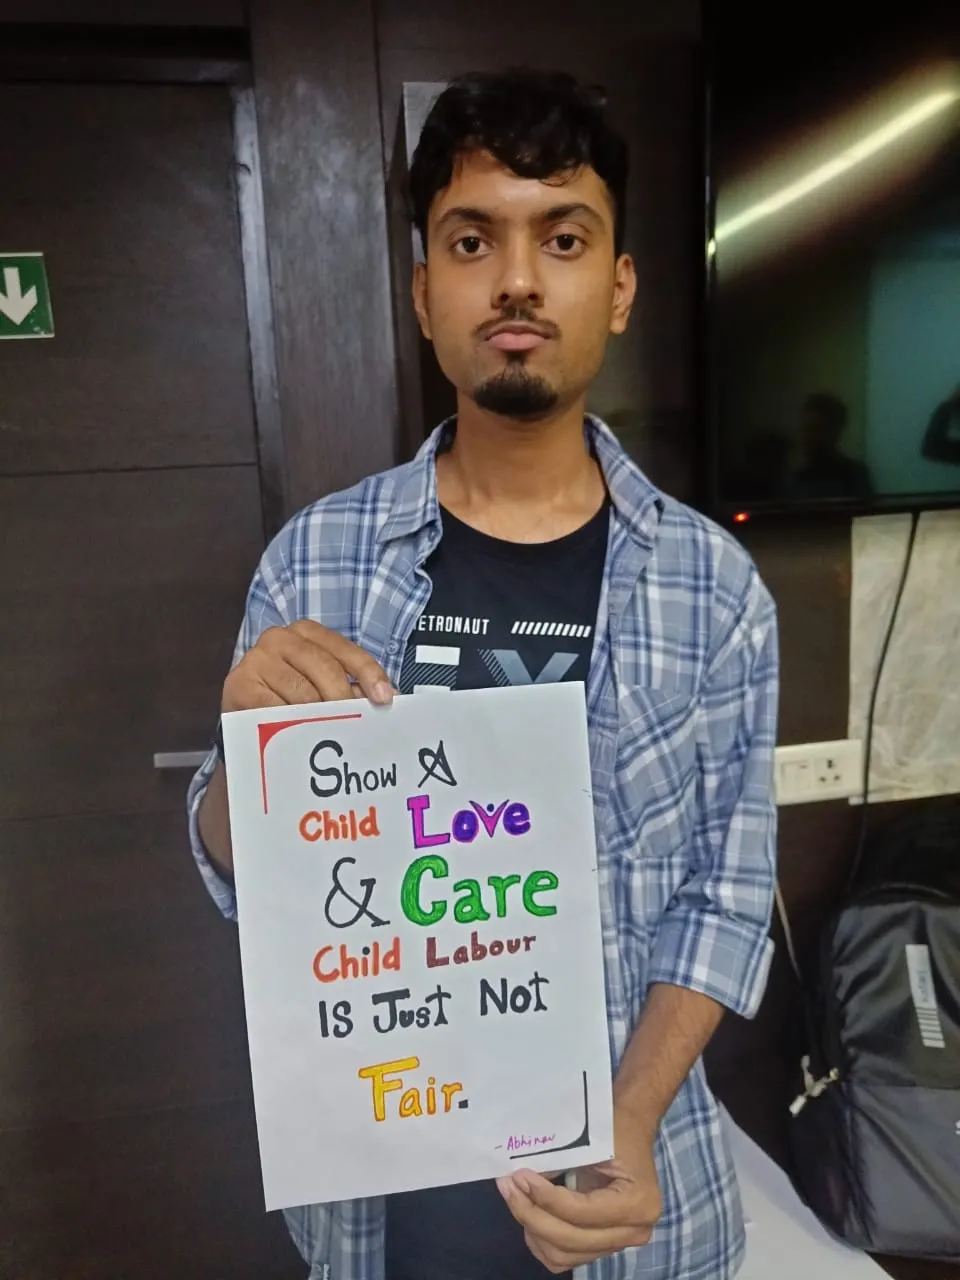 ETRONAUT
Show A
Child Love
& Care
Child Labour
Is Just Not
Fair.
- Abhinav